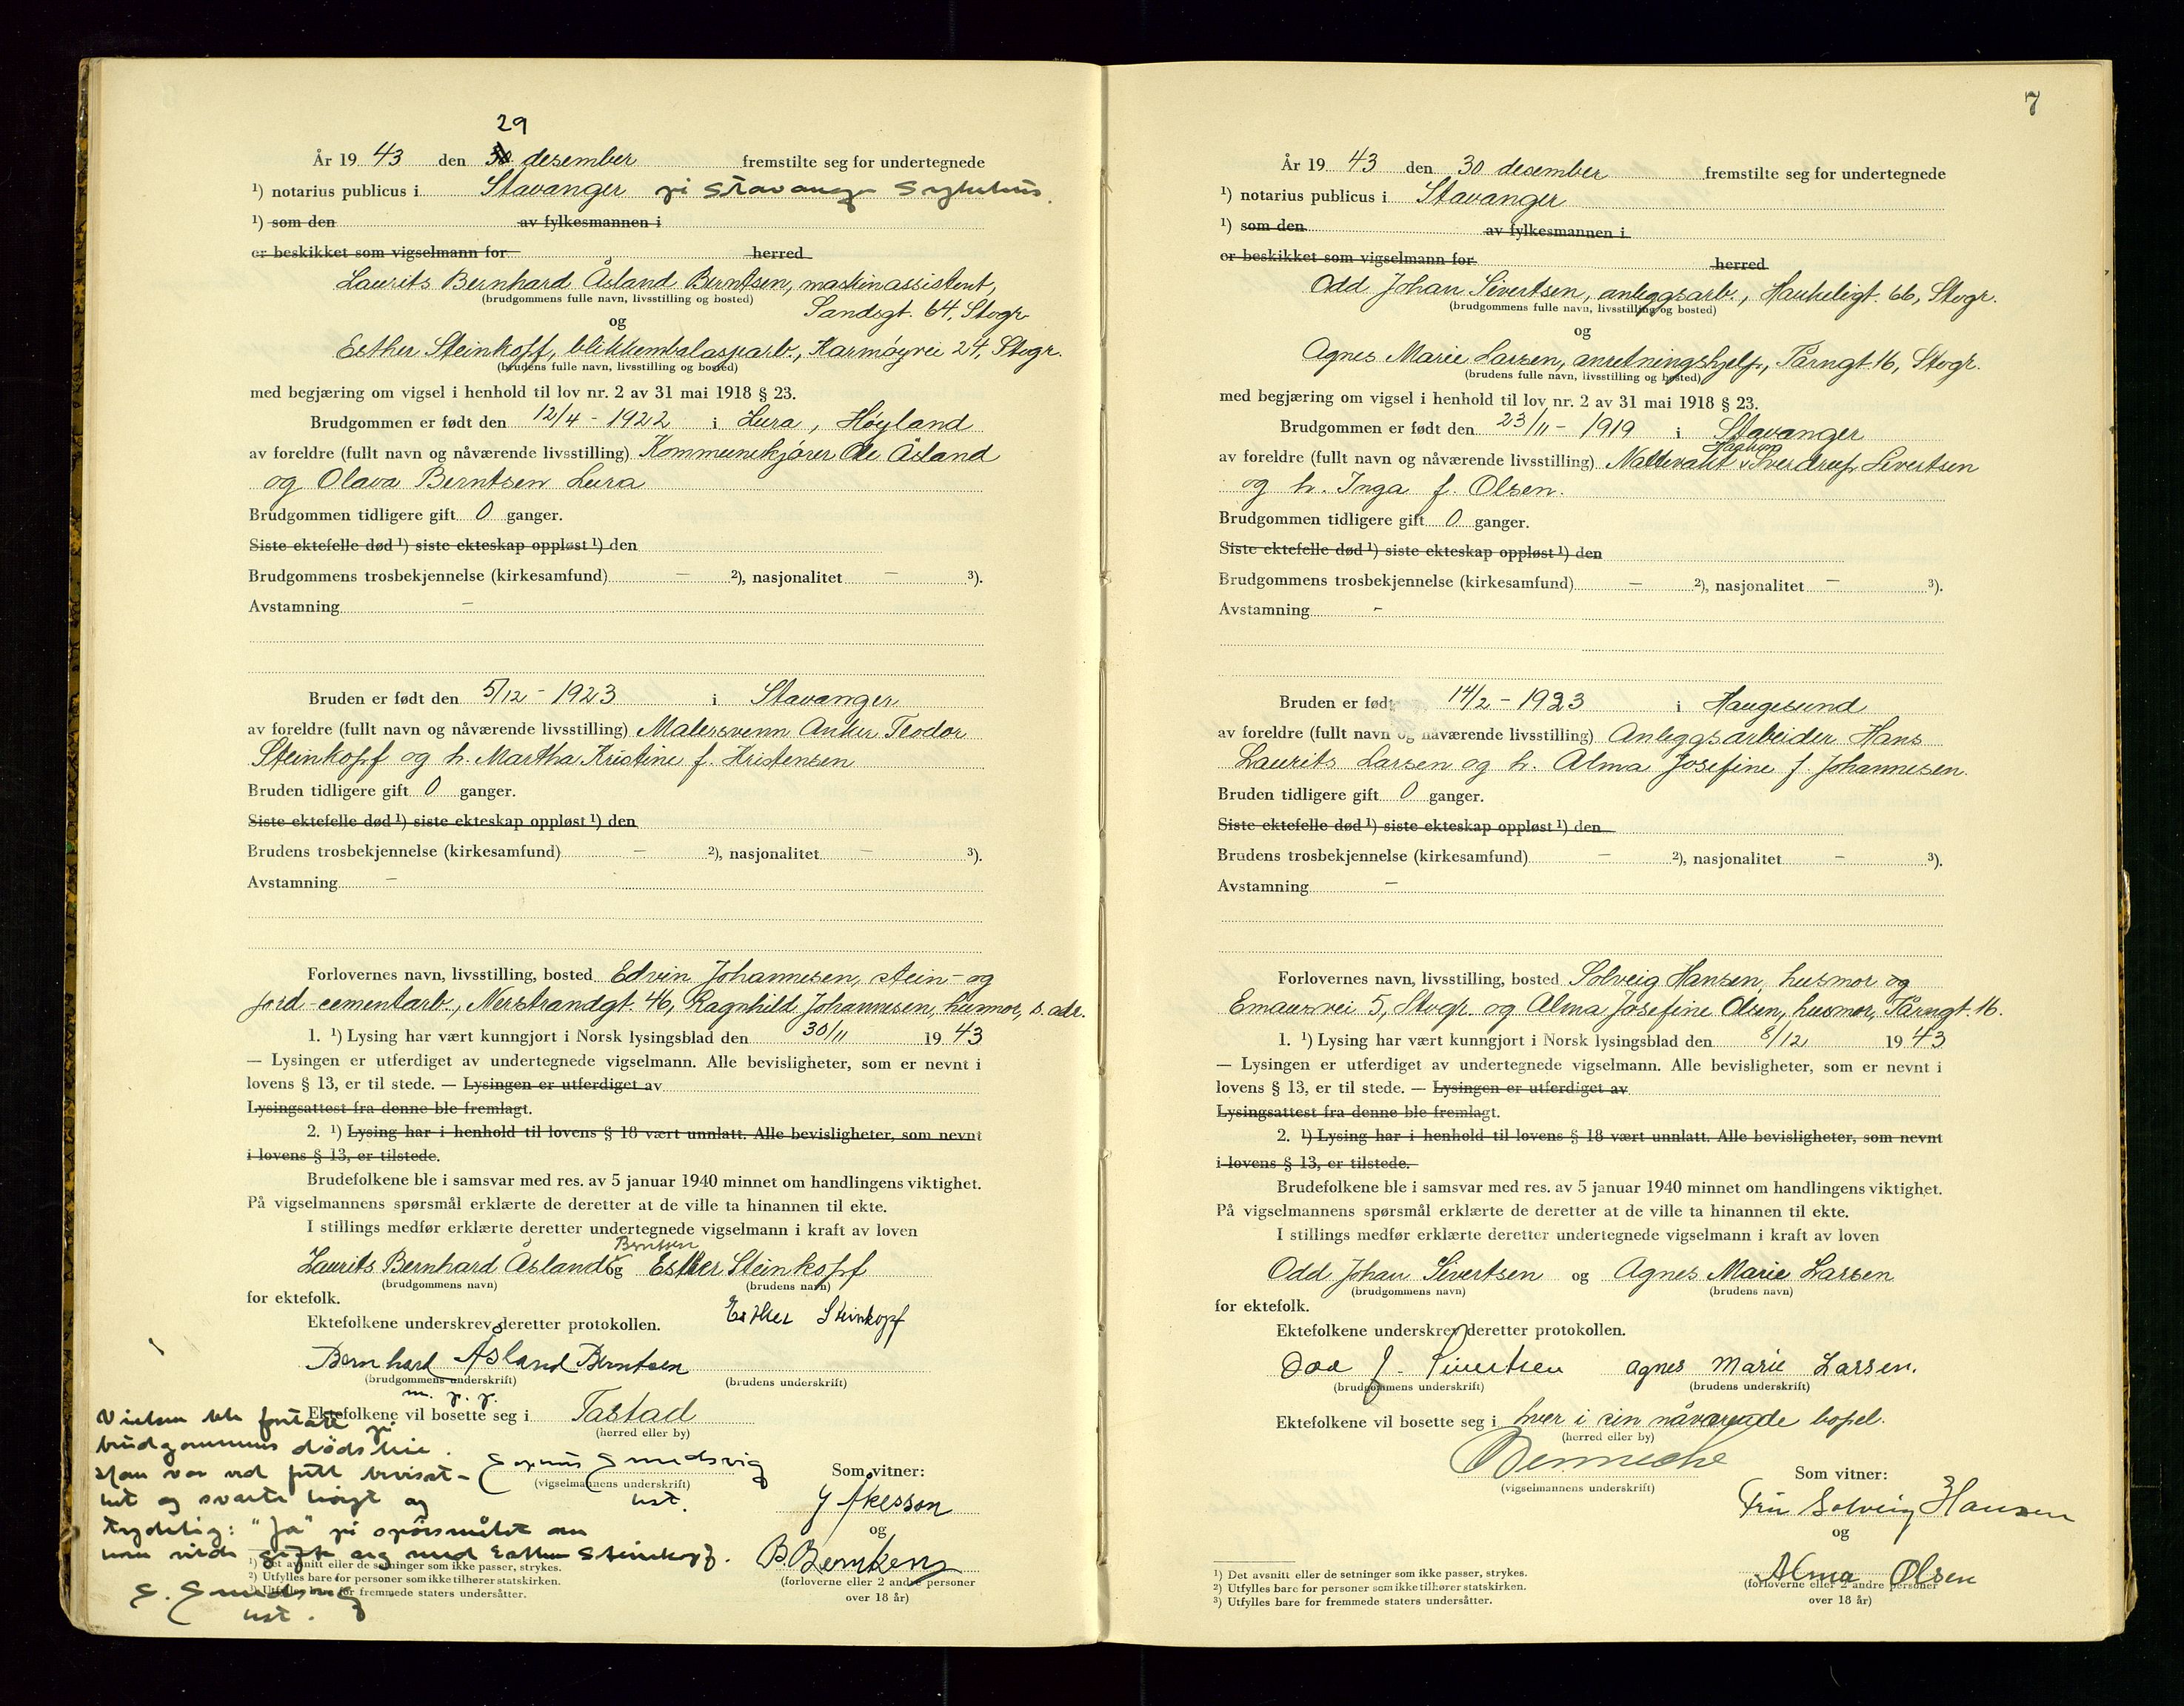 29
År 19 43 den 30 desember fremstilte seg for undertegnede
¹) notarius publicus i Stavanger på Stavanger Sykehus.
¹) som den av fylkesmannen i
er beskikket som vigselmann for herred
Laurits Bernhard Åsland Berntsen, maskinassistent,
(brudgommens fulle navn, livsstilling og bosted)
Sandsgt. 64, Stvgr.
og
Esther Steinkopf, blikkemballasjearb., Karmøyvei 24, Stvgr.
(brudens fulle navn, livsstilling og bosted)
med begjæring om vigsel i henhold til lov nr. 2 av 31 mai 1918 § 23.
Brudgommen er født den 12/4 - 1922 i Lura, Høyland
av foreldre (fullt navn og nåværende livsstilling) Kommunekjører Ole Åsland
og Olava Berntsen Lura
Brudgommen tidligere gift 0 ganger.
Siste ektefelle død ¹) siste ekteskap oppløst ¹) den
Brudgommens trosbekjennelse (kirkesamfund) — ²), nasjonalitet — ³).
Avstamning —
Bruden er født den 5/12 - 1923 i Stavanger
av foreldre (fullt navn og nåværende livsstilling) Malersvenn Anker Teodor
Steinkopf og h. Martha Kristine f. Kristensen
Bruden tidligere gift 0 ganger.
Siste ektefelle død ¹) siste ekteskap oppløst ¹) den
Brudens trosbekjennelse (kirkesamfund) — ²), nasjonalitet — ³).
Avstamning —
Forlovernes navn, livsstilling, bosted Edvin Johannesen, stein- og
jord-cementarb., Nerstrandgt. 46, Ragnhild Johannesen, husmor, s. adr.
1. ¹) Lysing har vært kunngjort i Norsk lysingsblad den 30/11 19 43
— Lysingen er utferdiget av undertegnede vigselmann. Alle bevisligheter, som er nevnt i
lovens § 13, er til stede. — Lysingen er utferdiget av
Lysingsattest fra denne ble fremlagt.
2. ¹) Lysing har i henhold til lovens § 18 vært unnlatt. Alle bevisligheter, som nevnt
i lovens § 13, er tilstede.
Brudefolkene ble i samsvar med res. av 5 januar 1940 minnet om handlingens viktighet.
På vigselmannens spørsmål erklærte de deretter at de ville ta hinannen til ekte.
I stillings medfør erklærte deretter undertegnede vigselmann i kraft av loven
Berntsen
Laurits Bernhard Åsland og Esther Steinkopf
(brudgommens navn) (brudens navn)
for ektefolk.
Ektefolkene underskrev deretter protokollen. Esther Steinkopf
Bernhard Åsland Berntsen
(brudgommens underskrift) (brudens underskrift)
m. p. p.
Ektefolkene vil bosette seg i Tastad
(herred eller by)
Vielsen ble foretatt på
brudgommens dødsleie.
Han var ved full bevisst-
het og svarte høigt og
tydelig: "Ja" på spørsmålet om
han vilde gifte sig med Esther Steinkopf.
E. Smedsvig
ust.
Smedsvig
(vigselmannens underskrift)
ust.
Som vitner:
Y Åkesson
og
B. Berntsen
(forloverne eller 2 andre personer
over 18 år)
¹) Det avsnitt eller de setninger som ikke passer, strykes.
²) Utfylles bare for personer som ikke tilhører statskirken.
³) Utfylles bare for fremmede staters undersåtter.
7
År 19 43 den 30 desember fremstilte seg for undertegnede
¹) notarius publicus i Stavanger
¹) som den av fylkesmannen i
er beskikket som vigselmann for herred
Odd Johan Sivertsen, anleggsarb., Haukeligt. 66, Stvgr.
(brudgommens fulle navn, livsstilling og bosted)
og
Agnes Marie Larsen, anretningshjelp, Tårngt. 16, Stvgr.
(brudens fulle navn, livsstilling og bosted)
med begjæring om vigsel i henhold til lov nr. 2 av 31 mai 1918 § 23.
Brudgommen er født den 23/11 - 1919 i Stavanger
av foreldre (fullt navn og nåværende livsstilling) Nattevakt Sverdrup Sivertsen
og h. Inga f. Olsen.
Brudgommen tidligere gift 0 ganger.
Siste ektefelle død ¹) siste ekteskap oppløst ¹) den
Brudgommens trosbekjennelse (kirkesamfund) — ²), nasjonalitet — ³).
Avstamning -
Bruden er født 14/2 - 1923 i Haugesund
av foreldre (fullt navn og nåværende livsstilling) Anleggsarbeider Hans
Laurits Larsen og h. Alma Josefine f. Johannesen.
Bruden tidligere gift 0 ganger.
Siste ektefelle død ¹) siste ekteskap oppløst ¹) den
Brudens trosbekjennelse (kirkesamfund) — ²), nasjonalitet — ³).
Avstamning —
Forlovernes navn, livsstilling, bosted Solveig Hansen, husmor og
Emausvei 5, Stvgr. og Alma Josefine Olsen, husmor, Tårngt. 16.
1. ¹) Lysing har vært kunngjort i Norsk lysingsblad den 8/12 19 43
— Lysingen er utferdiget av undertegnede vigselmann. Alle bevisligheter, som er nevnt i
lovens § 13, er til stede. — Lysingen er utferdiget av
Lysingsattest fra denne ble fremlagt.
2. ¹) Lysing har i henhold til lovens § 18 vært unnlatt. Alle bevisligheter, som nevnt
i lovens § 13, er tilstede.
Brudefolkene ble i samsvar med res. av 5 januar 1940 minnet om handlingens viktighet.
På vigselmannens spørsmål erklærte de deretter at de ville ta hinannen til ekte.
I stillings medfør erklærte deretter undertegnede vigselmann i kraft av loven
Odd Johan Sivertsen og Agnes Marie Larsen
(brudgommens navn) (brudens navn)
for ektefolk.
Ektefolkene underskrev deretter protokollen.
Odd J. Sivertsen Agnes Marie Larsen.
(brudgommens underskrift) (brudens underskrift)
Ektefolkene vil bosette seg i hver i sin nåværende bopel.
(herred eller by)
Benneche
(vigselmannens underskrift)
Som vitner:
Fru Solveig Hansen
og
Alma Olsen
(forloverne eller 2 andre personer
over 18 år)
¹) Det avsnitt eller de setninger som ikke passer, strykes.
²) Utfylles bare for personer som ikke tilhører statskirken.
³) Utfylles bare for fremmede staters undersåtter.